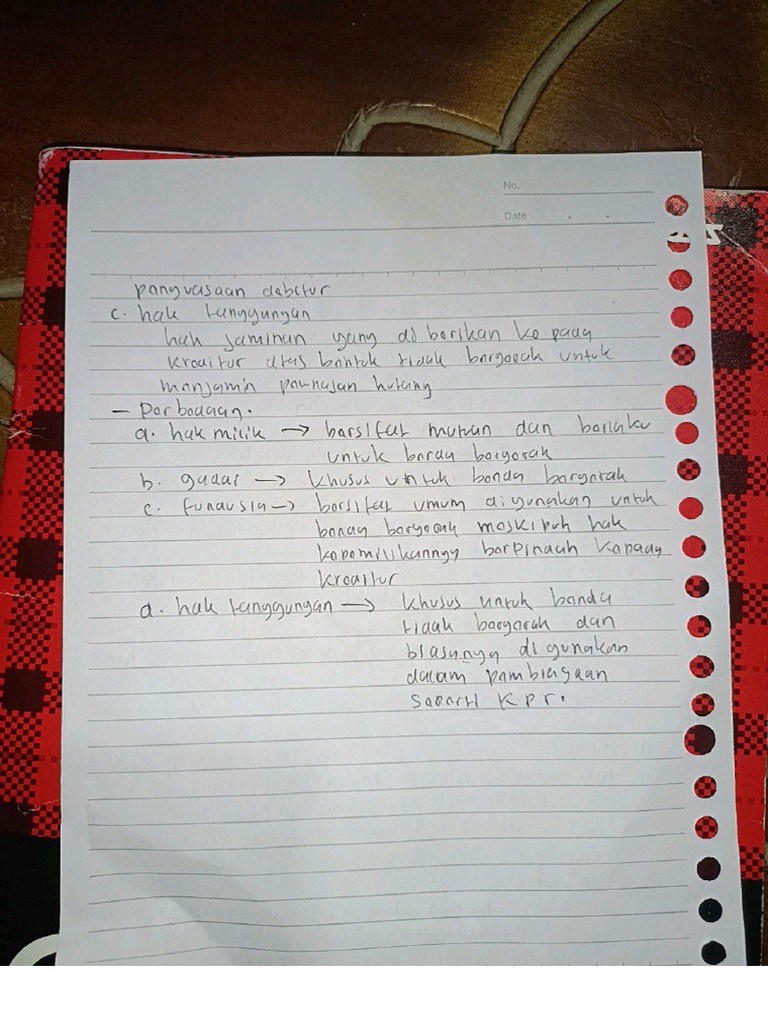 No.
Date
penguasaan debitur
c. hak tanggungan
hak jaminan yang di berikan ke pada
kreditur atas bentuk tidak bergerak untuk
menjamin pelunasan hutang
- Perbedaan.
a. hak milik → bersifat mutlak dan berlaku
untuk benda bergerak
b. gadai → khusus untuk benda bergerak
c. Fundusia → bersifat umum digunakan untuk
benda bergerak meskipun hak
kepemilikannya berpindah kepada
kreditur
d. hak tanggungan → khusus untuk benda
tidak bergerak dan
biasanya di gunakan
dalam pembiayaan
seperti KPR.